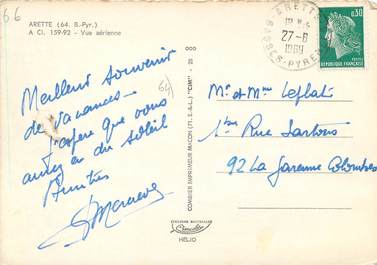 66
ARETTE (64. B.-Pyr.)
A CI. 159-92 - Vue aérienne
64
Meilleur souvenir
de vacances -
J'espère que vous
aurez eu du soleil
Amitiés
COMBIER IMPRIMEUR MACON (71. S.-L.) "CIM"
Combier
HÉLIO
ARETTE
27-8
1969
BSES-PYRENEES
0,30
REPUBLIQUE FRANÇAISE
Mr. et Mme Leflat
Rue Sartous
92 La Garenne Colombes